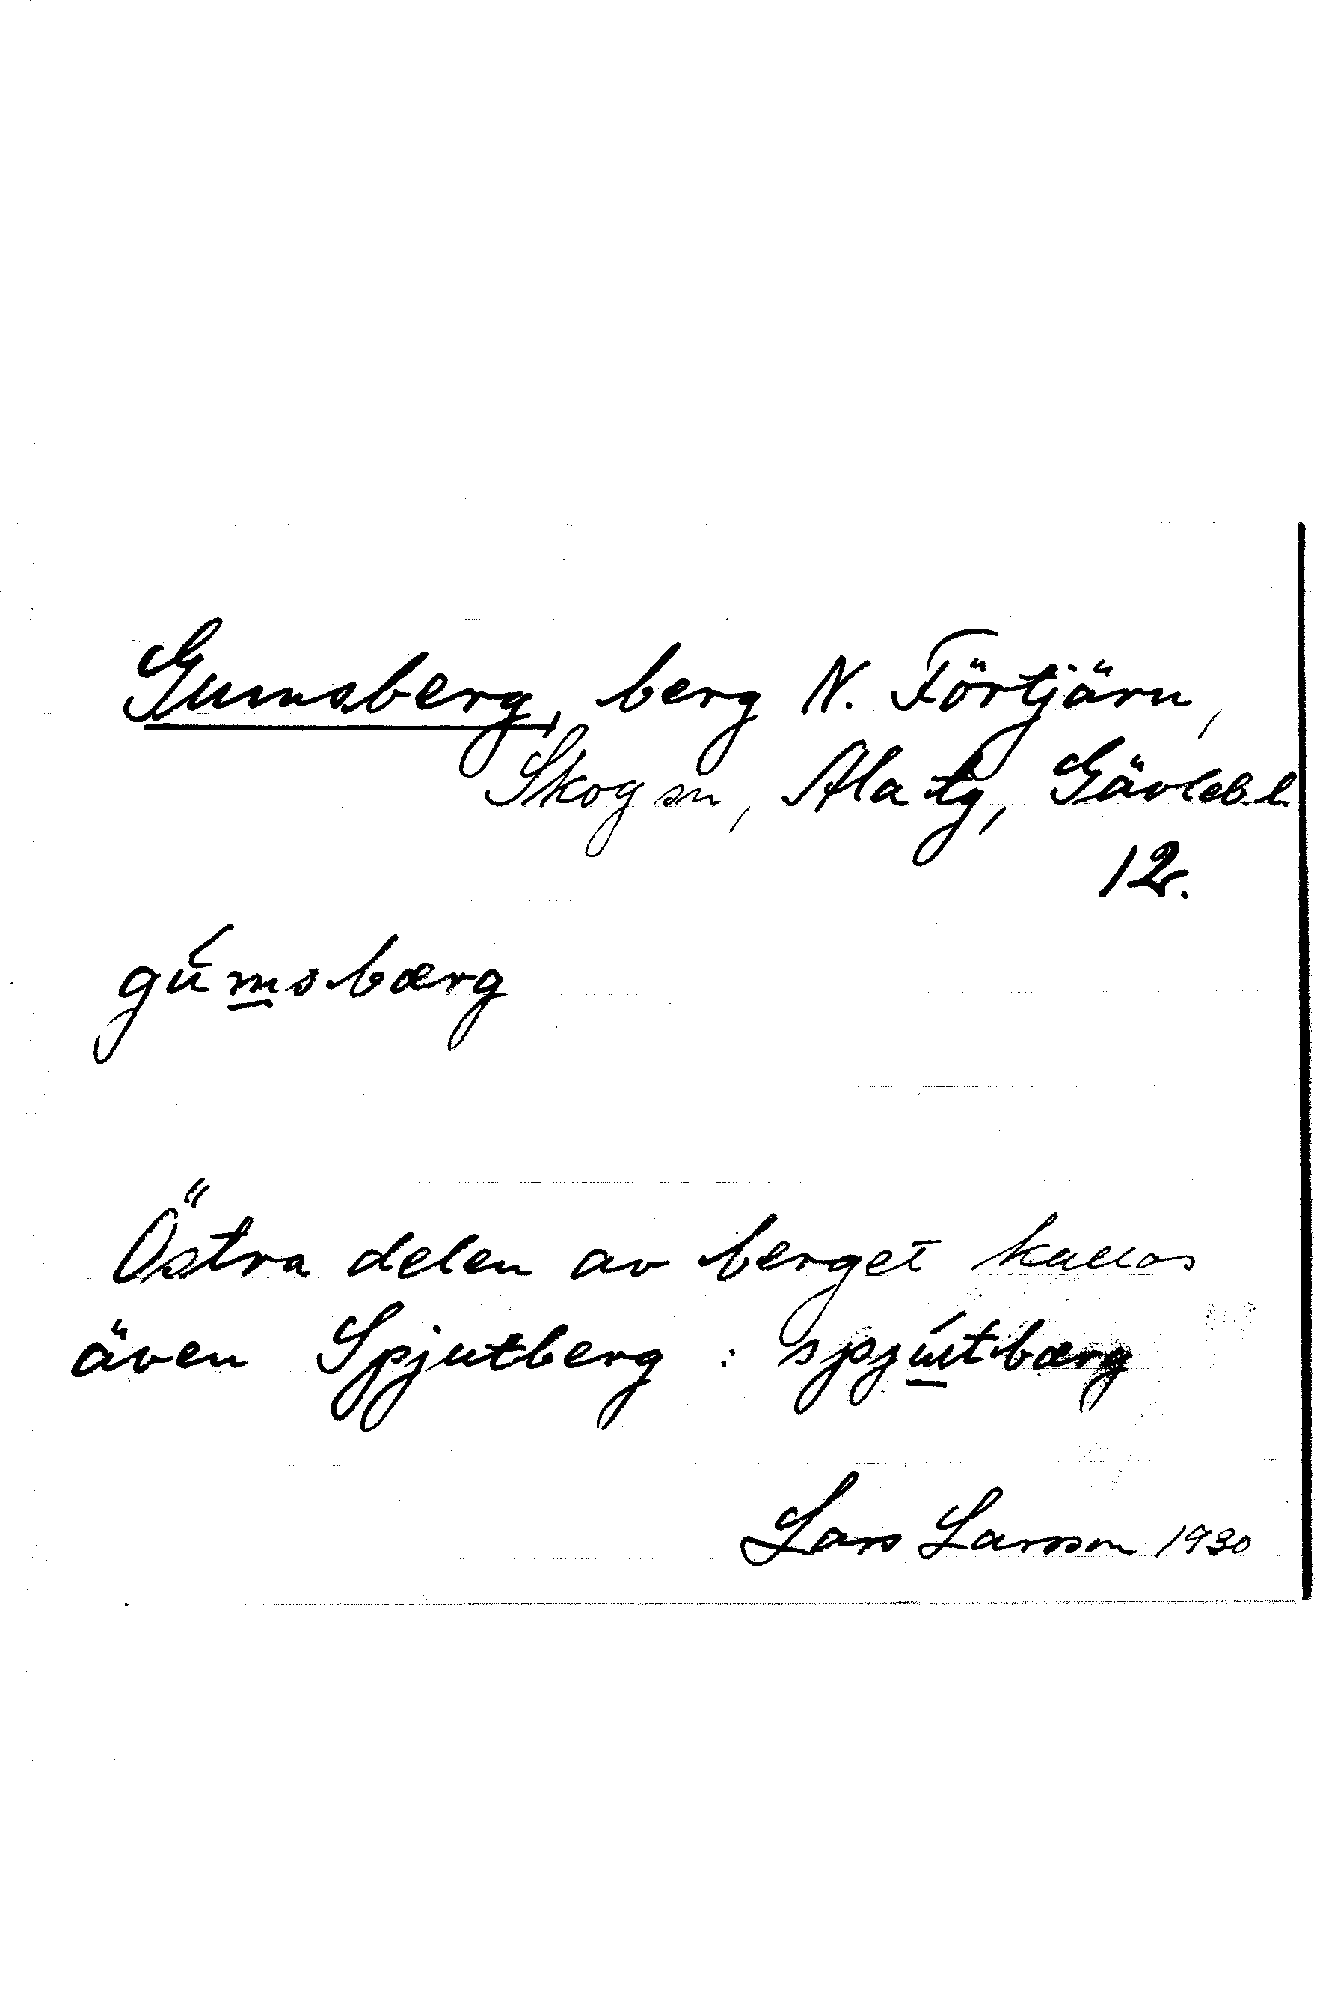 Gumsberg, berg N. Förtjärn,
Skog sn, Ala tg, Gävleb.l.
12.
gúmsbærg
Östra delen av berget kallas
även Spjutberg : spjútbærg
Lars Larsson 1930